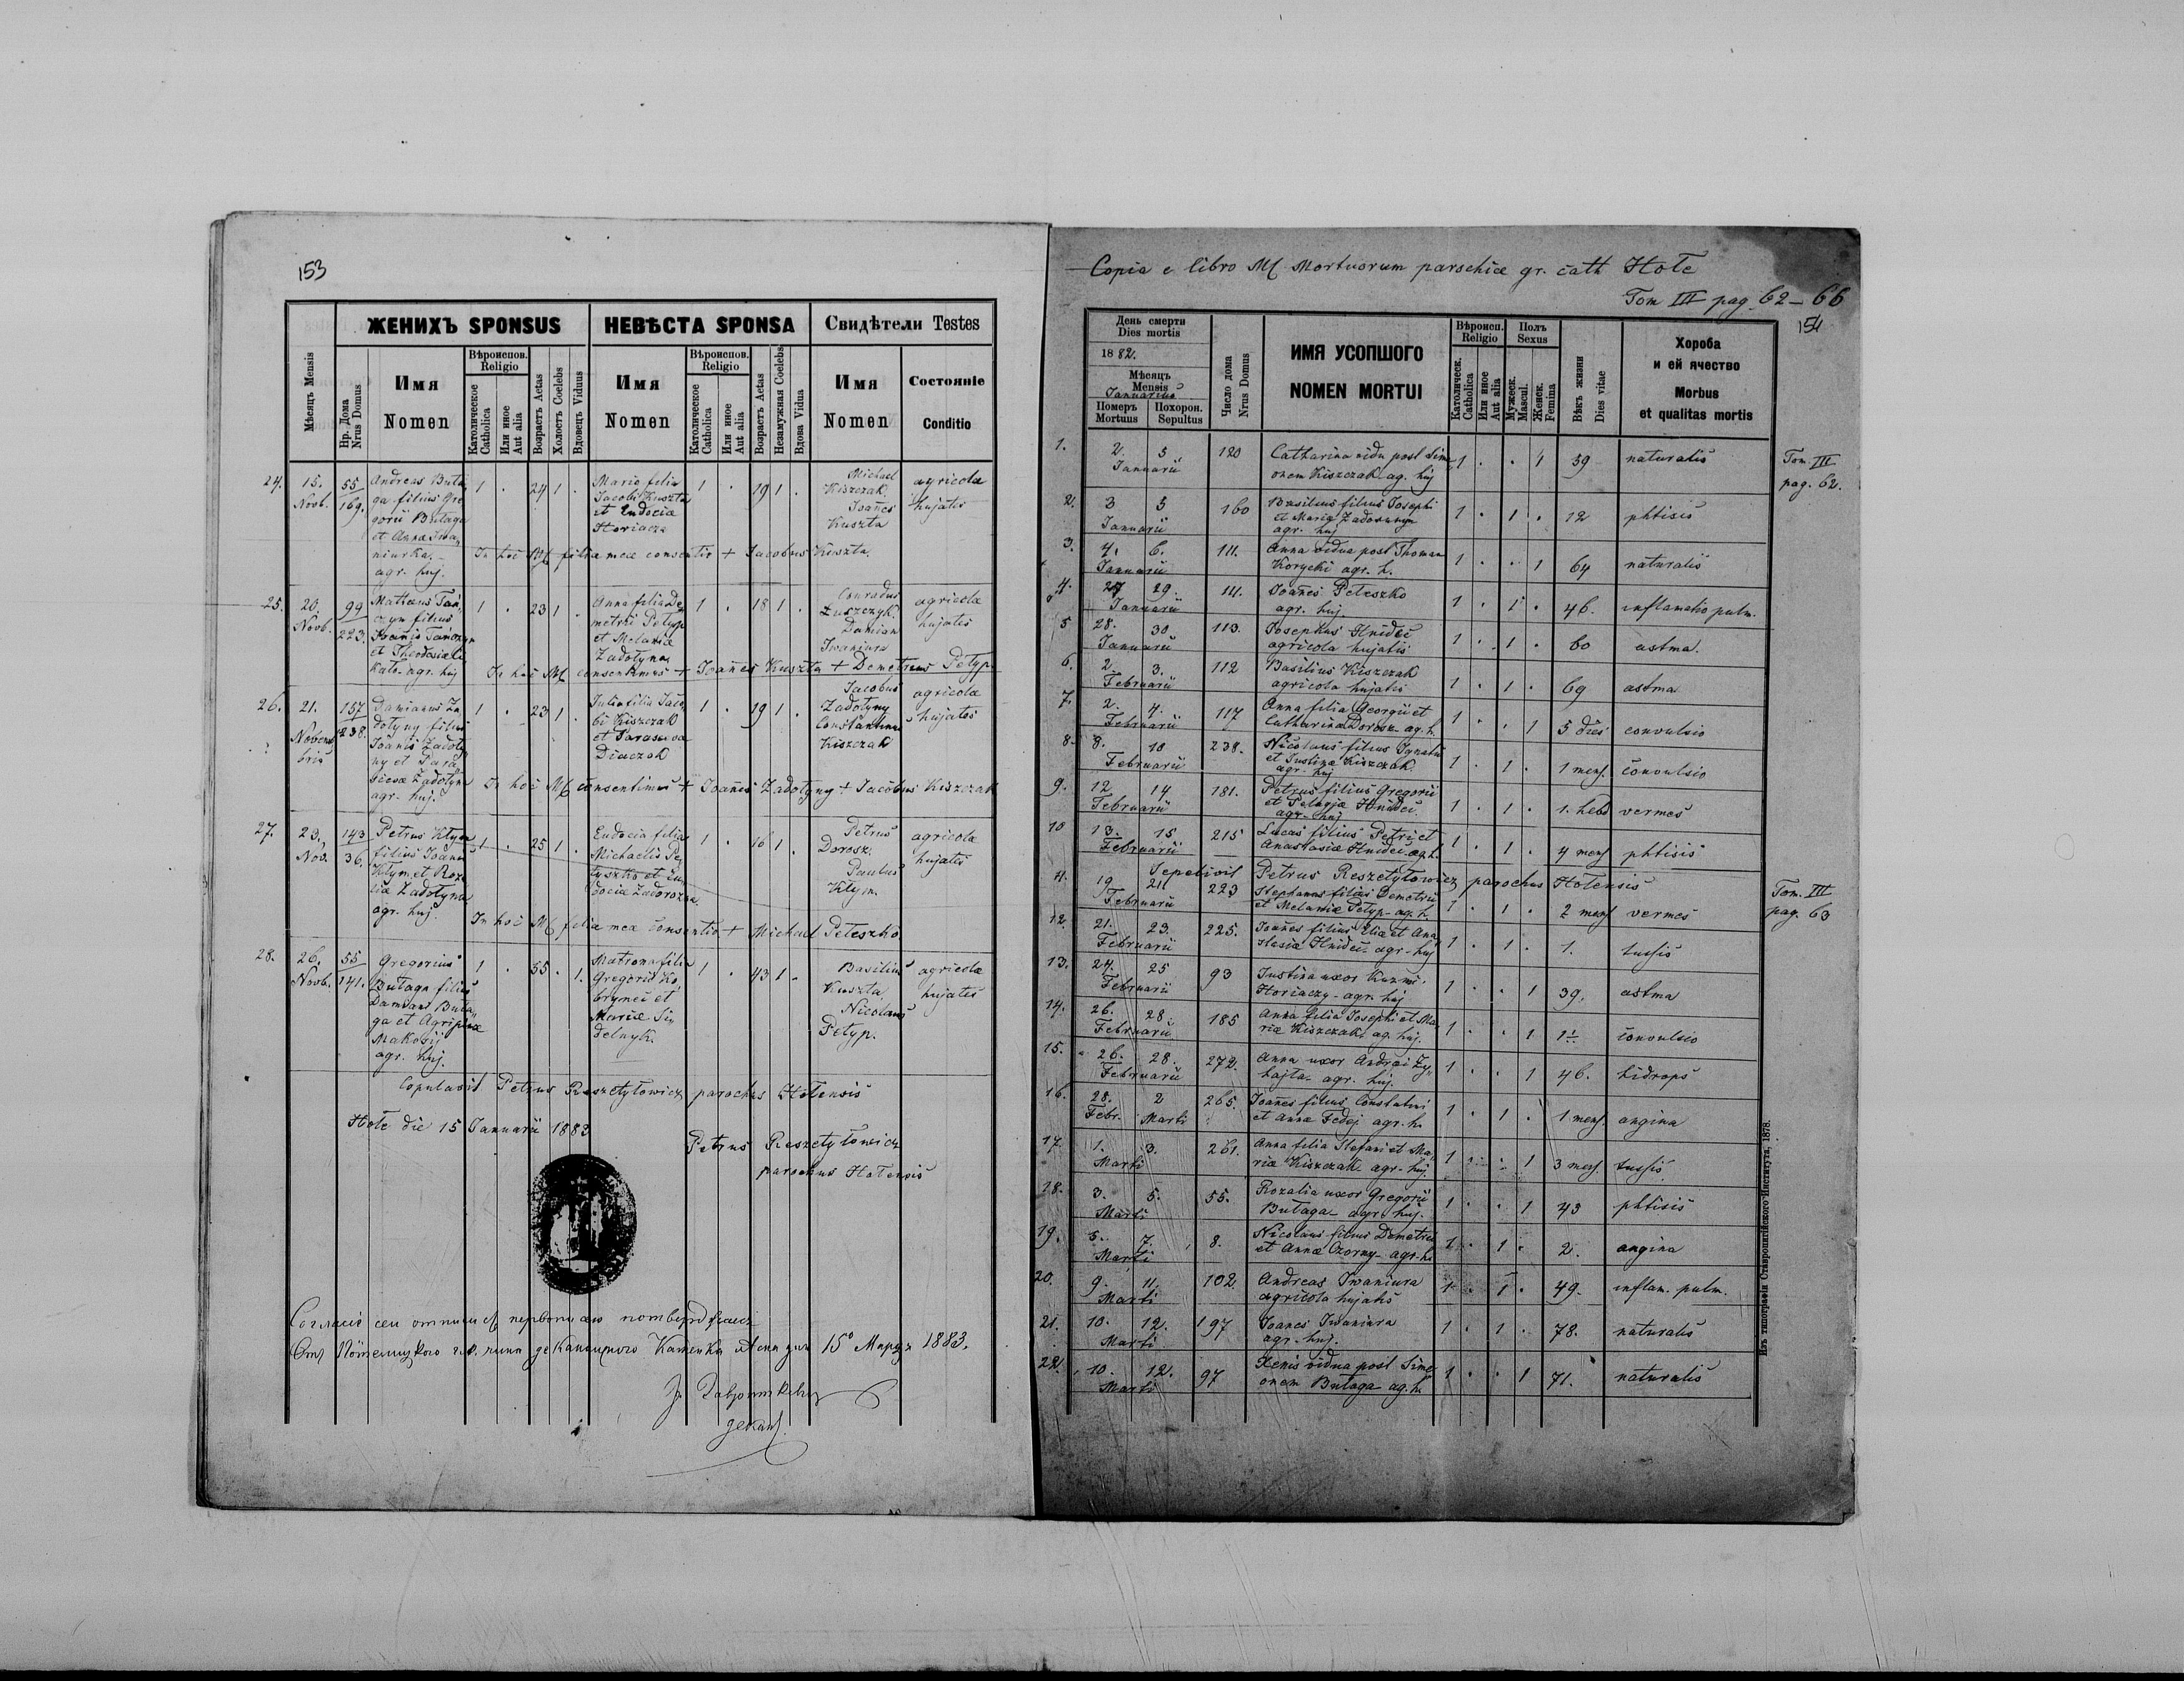 153
ЖЕНИХЪ SPONSUS
НЕВѢСТА SPONSA
Свидѣтели Testes
Мѣсяцъ Mensis
Нр. Дома
Nrus Domus
Имя
Nomen
Вѣроиспов.
Religio
Католическое
Catholica
Или иное
Aut alia
Возрастъ Aetas
Холостъ Coelebs
Вдовецъ Viduus
Имя
Nomen
Вѣроиспов.
Religio
Католическое
Catholica
Или иное
Aut alia
Возрастъ Aetas
Незамужная Coelebs
Вдова Vidua
Имя
Nomen
Состояніе
Conditio
24. 15. Novb. 55/169.
Andreas Buta
ga filius Gre
gorii Butaga
et Anna Iwa
niurka
agr. huj.
1 . 24 1 .
Maria filia
Jacobi Kuszta
et Eudocia
Horiacza
1 . 19 1 .
Michael
Kiszczak
Joañes
Kuszta
agricola
hujatis
In hoc M filia mea consentio + Jacobus Kuszta
25. 20. Novb. 99/223.
Joanis
et Theodosia
agr. huj
1 . 23 1 .
Anna filia De
metri Petyp
et Melania
Zadotyna
1 . 18 1 .
Conradus
Łuszczyk
Damian
Iwaniura
agricola
hujatis
In hoc M consentimus + Joañes Kuszta + Demetrius Petyp
26. 21. Novem
bris 157/238.
Damianus Za
dotyny filius
Joanis Zadoty
ny et Para
scieva Zadotyna
agr. huj.
1 . 23 1 .
Julia filia Jaco
bi Kiszczak
et Parascieva
Diaczok
1 . 19 1 .
Jacobus
Zadotyny
Constantinus
Kiszczak
agricola
hujates
In hoc M consentimus + Joañes Zadotyny + Jacobus Kiszczak
27. 23. Nov. 143/36.
Petrus Ktym
filius Joanis
Ktym et Roza
lia Zadotyna
agr. huj.
1 . 25 1 .
Eudocia filia
Michaelis Pe
tyszko et Eu
docia Zadorozna
1 . 16 1 .
Petrus
Dorosz.
Paulus
Ktym.
agricola
hujatis
In hoc M filia mea consentio + Michael Peteszko
28. 26. Novb. 55/141.
Gregorius
Butaga filius
Damiani Buta
ga et Agripina
Makosij
agr. huj.
1 . 55 . 1.
Matrona filia
Gregorii Ko
brynici et
Maria Si
delnyk.
1 . 43 1 .
Basilius
Kuszta
Nicolaus
Petyp.
agricola
hujates
Copulavit Petrus Reszetyłowicz parochus Hotensis
Hote die 15 Januarii 1883
Petrus Reszetyłowicz
parochus Hotensis
15 1883.
декан
Copia e libro M Mortuorum parochiæ gr. cath Hołe
Tom III pag 62 – 66
154
День смерти
Dies mortis
1882.
Мѣсяцъ
Mensis
Januarius
Померъ
Mortuus
Похорон.
Sepultus
Число дома
Nrus Domus
ИМЯ УСОПШОГО
NOMEN MORTUI
Вѣроисп.
Religio
Католическ.
Catholica
Или иное
Aut alia
Полъ
Sexus
Мужеск.
Mascul.
Женск.
Femina
Вѣкъ жизни
Dies vitae
Хороба
и ей ячество
Morbus
et qualitas mortis
1. 2. 5 Januarii 120 Catharina vidu post Sime
onem Kiszczak ag. huj 1 . . 1 59 naturalis
Tom. III
pag. 62.
2. 3 5 Januarii 160 Basilius filius Josephi
et Maria
agr. huj 1 . 1 . 12 phtisis
3. 4. 6. Januarii 111. Anna vidua post Thoman
Korycki agr. h. 1 . . 1 64 naturalis
4. 27 29. Januarii 111. Joañes Peteszko
agr. huj. 1 . 1 . 46. inflamatio pulm.
5 28. 30 Januarii 113. Josephus Hnidec
agricola hujatis 1 . 1 . 60 astma.
6. 2. 3. Februarii 112 Basilius Kiszczak
agricola hujatis 1 . 1 . 69 astma
7. 2. 4. Februarii 117 Anna filia Georgii et
Catharina Dorosz ag. h. 1 . . 1 5 dies convulsio
8. 8. 10 Februarii 238. Nicolaus filius Ignatii
et Justina Kiszczak
agr. huj 1 . 1 . 1 mens. convulsio
9. 12 14 Februarii 181. Petrus filius Gregorii
et Pelagia Hnidec
agr. huj 1 . 1 . 1. hebd vermes
10 13. 15 Februarii 215 Lucas filius Petri et
Anastasia Hnidec ag. h. 1 . 1 . 4 mens phtisis
Sepelivit Petrus Reszetyłowicz parochus Hotensis
11. 19 21 Februarii 223 Stephanus filius Demetrii
et Melania Petyp ag. h. 1 . 1 . 2 mens vermes
Tom. III
pag. 63
12. 21. 23. Februarii 225. Joañes filius Eliæ et Ana
stasia Hnidec agr. huj 1 . 1 . 1. tussis
13. 24. 25 Februarii 93 Justina uxor Kuzmi
Horiaczy agr. huj 1 . . 1 39. astma
14. 26. 28. Februarii 185 Anna filia Josephi et Ma
riæ Kiszczak ag. huj. 1 . . 1 convulsio
15. 26. 28. Februarii 272. Anna uxor Andrei Zy
hajta agr. huj. 1 . . 1 46. hidrops
16. 28. Febr. 2 Marti 265. Joañes filius Constatini
et Anna Fedej agr. h. 1 . 1 . 1 mens. angina
17. 1. 3. Marti 261. Anna filia Stefani et Ma
riæ Kiszczak agr. huj. 1 . . 1 3 mens. tussis
18. 3. 5. Marti 55. Rozalia uxor Gregorii
Butaga agr. huj. 1 . . 1 43 phtisis
19. 5. 7. Marti 8. Nicolaus filius Demetrii
et Anna Czorny agr. h. 1 . 1 . 2. angina
20. 9. 11. Marti 102 Andreas Iwaniura
agricola hujatis 1 . 1 . 49. inflam. pulm.
21. 10. 12. Marti 197 Joanes Iwaniura
agr. huj. 1 . 1 . 78. naturalis
22. 10. 12. Marti 97 Xenis vidua post Sime
onem Butaga ag. h. 1 . . 1 71. naturalis
Изъ типографіи Ставропигійского Института, 1878.